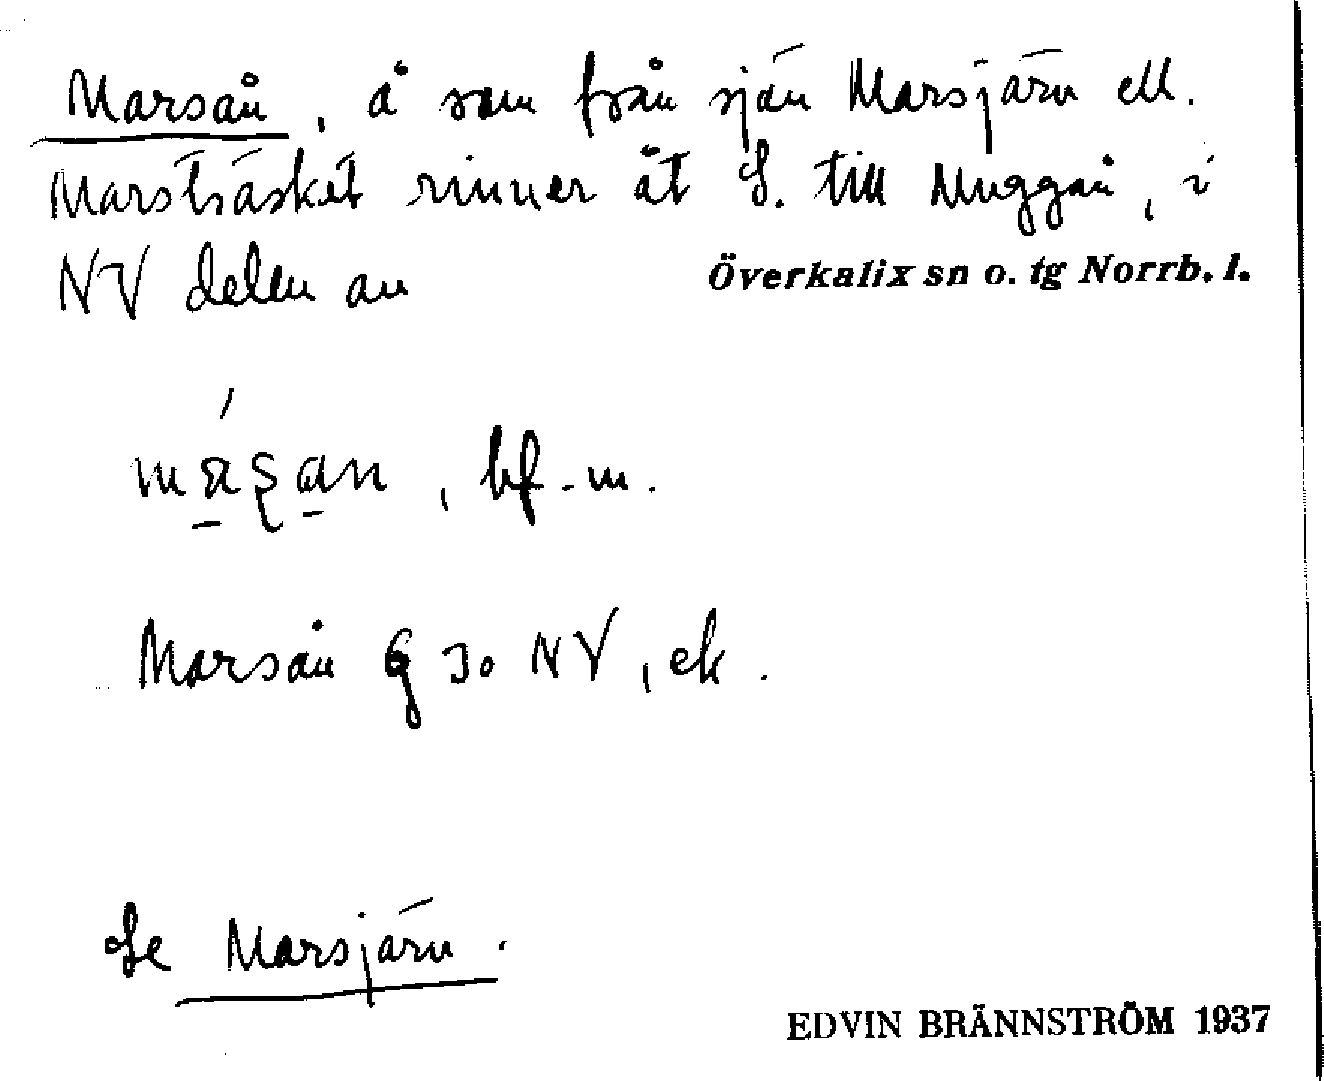 Marsån, å som från sjön Marsjärv ell.
Marsträsket rinner åt S. till Muggån, i
NV delen av Överkalix sn o. tg Norrb. l.
bf. m.
Marsån G 30 NV, ek.
Se Marsjärv.
EDVIN BRÄNNSTRÖM 1937